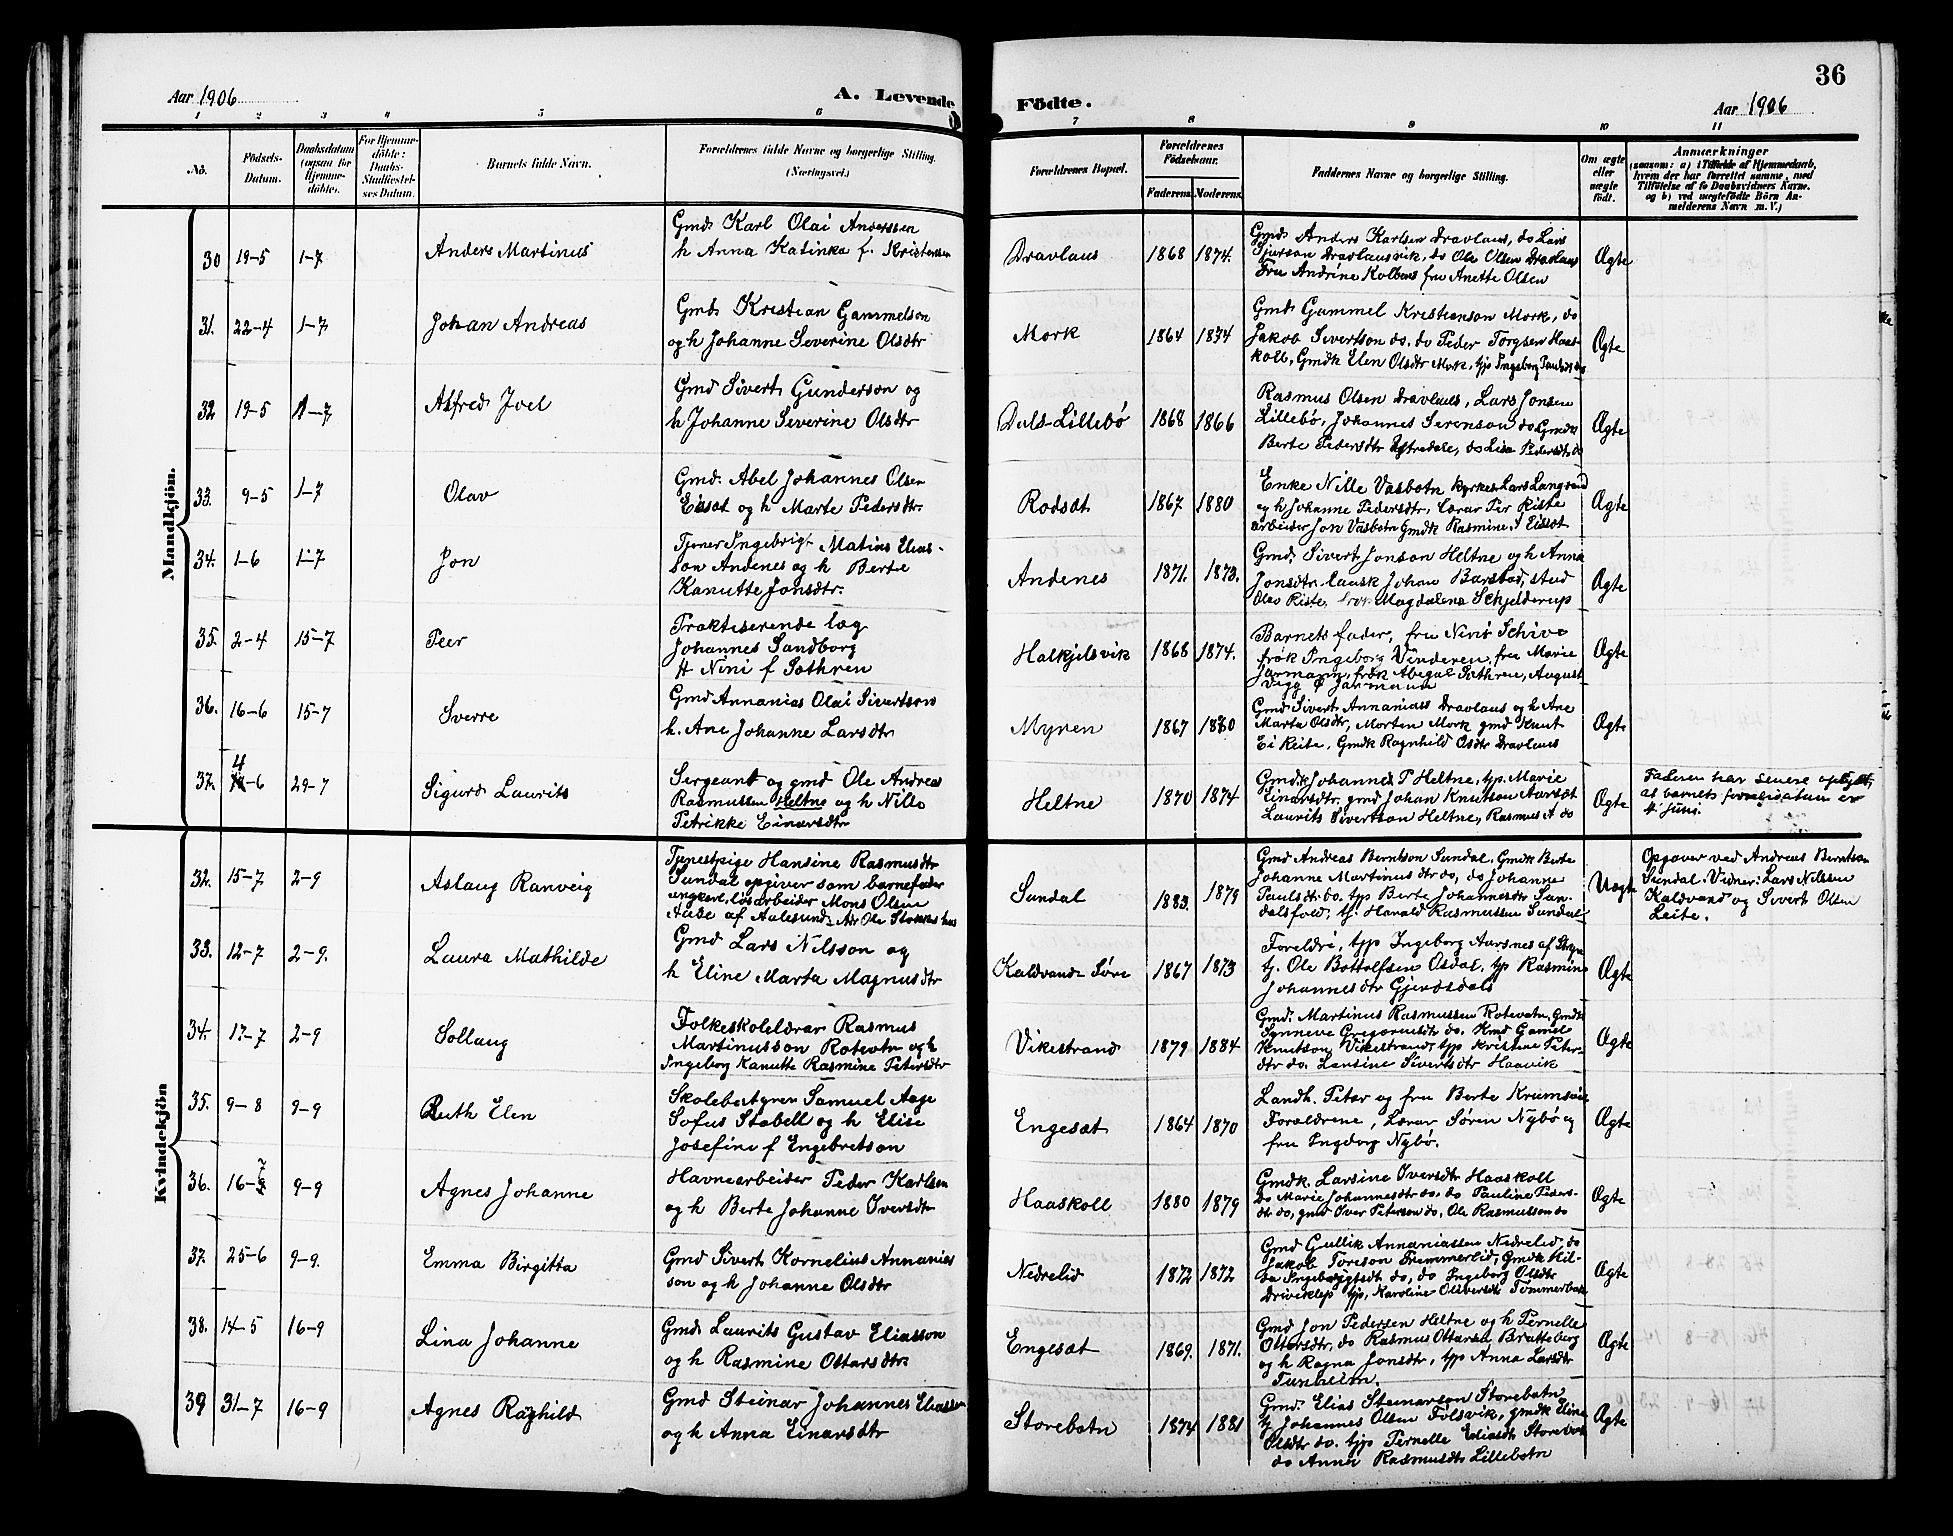 Aar 1906
A. Levende Födte.
Aar 1906
36
1 2 3 4 5 6 7 8 9 10 11
No.
Födsels-
Datum.
Daabsdatum
(ogsaa for
Hjemme-
döbte).
For Hjemme-
döbte:
Daabs-
Stadfæstel-
ses Datum.
Barnets fulde Navn.
Forældrenes fulde Navne og borgerlige Stilling.
(Næringsvei.)
Forældrenes Bopæl.
Forældrenes
Födselsaar.
Faderens. Moderens.
Faddernes Navne og borgerlige Stilling.
Om ægte
eller
uægte
født.
Anmærkninger
(saasom: a) i Tilfælde af Hjemmedaab,
hvem der har forrettet samme, med
Tilføielse af to Daabsvidners Navne.
og b) ved uægtefödte Börn An-
melderens Navn m. V.)
Mandkjön.
30 19-5 1-7 Anders Martinus
Gmd. Karl Olai Anderssen
h Anna Katinka f. Kristensen
Dravlaus 1868 1874.
Gmd. Anders Karlsen Dravlaus, do Lars
Dravlausvik, do Ole Olsen Dravlaus
Fru Andrine Kolbens fru Anette Olsen
Ægte
31. 22-4 1-7 Johan Andreas
Gmd. Kristian Gammelson
og h Johanne Severine Olsdtr
Mork 1864 1874
Gmd. Gammel Kristianson Mork, do
Jakob Sivertson do. do Peder Torgsen Haas-
koll, Gmdk Elen Olsdtr Mork, tjp Ingeborg
Ægte
32 19-5 1-7 Alfred Joel
Gmd Sivert Gunderson og
h Johanne Severine Olsdtr
Dals-Lillebø 1868 1866
Rasmus Olsen Dravlaus, Lars Jonsen
Lillebø, Johannes Serenson do Gmdk
Berte Pedersdtr do Lisa Pedersdtr do
Ægte
33. 9-5 1-7 Olav
Gmd. Abel Johannes Olsen
Eisæt og h Marte Pedersdtr.
Rodsæt 1867 1880
Enke Nille Vasbotn kyrkes. Lars Langsand
og h Johanne Pedersdtr, Lærar Per Riste
arbeider Jon Vasbotn Gmdk Rasmine Eissæt
Ægte
34. 1-6 1-7 Jon
Tjener Ingebrigt Matias Elias-
son Andenes og h Berte
Kanutte Jonsdtr.
Andenes 1871. 1873.
Gmd. Sivert Jonson Heltne og h Anna
Jonsdtr. Johan Barstad, stud
Olav Riste, Magdalena Schjelderup
Ægte
35. 2-4 15-7 Peer
Praktiserende læg
Johannes Sandborg
H Nini f Sothren
Halkjelsvik 1868 1874.
Barnets fader, fru Nini Schive
frøk Ingeborg Vinderen, fru Marie
Jarmann, frøk Abigal Sothren, August
Vigg Jarmann
Ægte
36. 16-6 15-7 Sverre
Gmd Annanias Olai Sivertson
h. Ane Johanne Larsdtr
Myren 1867 1870
Gmd Sivert Annanias Dravlaus og h Ane
Marta Olsdtr, Morten Mork gmd Knut
Ei Reite, Gmdk Ragnhild Osdtr Dravlaus
Ægte
37. 4-6 29-7 Sigurd Laurits
Sergeant og gmd Ole Andreas
Rasmussen Heltne og h Nille
Petrikke Einarsdtr
Heltne 1870 1874
Gmdk Johanne P Heltne, tjp. Marie
Einarsdtr, gmd Johan Knutson Aarsæt
Laurits Sivertson Heltne, Rasmus A do
Ægte
Faderen har senere oplyst,
at barnets fødselsdatum er
4' juni.
Kvindekjön
32. 15-7 2-9 Aslaug Ranveig
Tjenestpige Hansine Rasmusdtr
Sundal opgiver som barnefader
ungkarl, løsarbeider Mons Olsen
Aase af Aalesund. Adr Ole Stokkes hus
Sundal 1883. 1879
Gmd Andreas Berntson Sundal. Gmdk Berte
Johanne Martinusdtr do, do Johanne
Paulsdtr do. tjp Berte Johannesdtr Sun-
dalsfold, tj. Harald Rasmussen Sundal
Uægte
Opgaver ved Andreas Berntson
Sundal. Vidner: Lars Nilssen
Kaldvand og Sivert Olsen
Leite.
33. 12-7 2-9. Laura Mathilde
Gmd Lars Nilsson og
h Eline Marta Magnusdtr
Kaldvand Søre 1867 1873
Foreldre, tjp Ingeborg Aarsnes af Stryn
tj. Ole Bottolfsen Osdal, tjp Rasmine
Johannesdtr Gjerdsdals
Ægte
34. 17-7 2-9 Sollaug
Folkeskolelærar Rasmus
Martinusson Rotevatn og h
Ingeborg Kanutte Rasmine Petersdtr
Vikestrand 1879 1884
Gmd. Martinus Rasmussen Rotevatn, Gmdk
Synneve Gregoriusdtr do. Kmd Gamel
Knutson Vikestrand, tjp Kristine Peter-
dtr do. Lansine Sivertsdtr Haavik
Ægte
35. 9-8 9-9 Ruth Elen
Skolebestyrer Samuel Aage
Sofus Stabell og h Elise
Josefine f Engebretson
Engesæt 1864 1870
Landh. Peter og fru Berte Krumsvik
Forældrene, Lærar Søren Nybø og
fru Ingeborg Nybø.
Ægte
36. 16-7 9-9 Agnes Johanne
Havnearbeider Peder Karlsen
og h Berte Johanne Iversdtr
Haaskoll 1880 1879
Gmdk. Larsine Iversdtr Haaskoll
do Marie Johannesdtr do. do Pauline Peders-
dtr do, gmd Iver Peterson do, Ole Rasmusson do
Ægte
37. 25-6 9-9. Emma Birgitta
Gmd Sivert Kornelius Annanias
son og h Johanne Olsdtr
Nedrelid 1872 1872
Gmd Gullik Annaniassen Nedrelid, do
Jakob Toreson Trimmerlid, Gmdk Hil-
da Ingebrigtsdt do, do Ingeborg Olsdtr
Driveklep tjp, Karoline Olsdtr Tommerbak
Ægte
38. 14-5 16-9 Lina Johanne
Gmd. Laurits Gustav Eliasson
og h Rasmine Ottarsdtr.
Engesæt 1869. 1871.
Gmd Jon Pedersen Heltne og h Pernelle
Ottarsdtr, do Rasmus Ottarsen Bratteberg
og h Ragna Jonsdtr, tjp Anna Larsdtr
Ægte
39 31-7 16-9 Agnes Raghild
Gmd Steinar Johannes Eliassen
og h Anna Einarsdtr
Storebotn 1874 1881
Gmd. Elias Steinarson Storebotn
tj Johannes Olsen Folsvik, gmdk Eline
Olsdtr do. tjp Pernelle Eliasdt Storebot
do Anna Rasmusdtr Lillebotn
Ægte